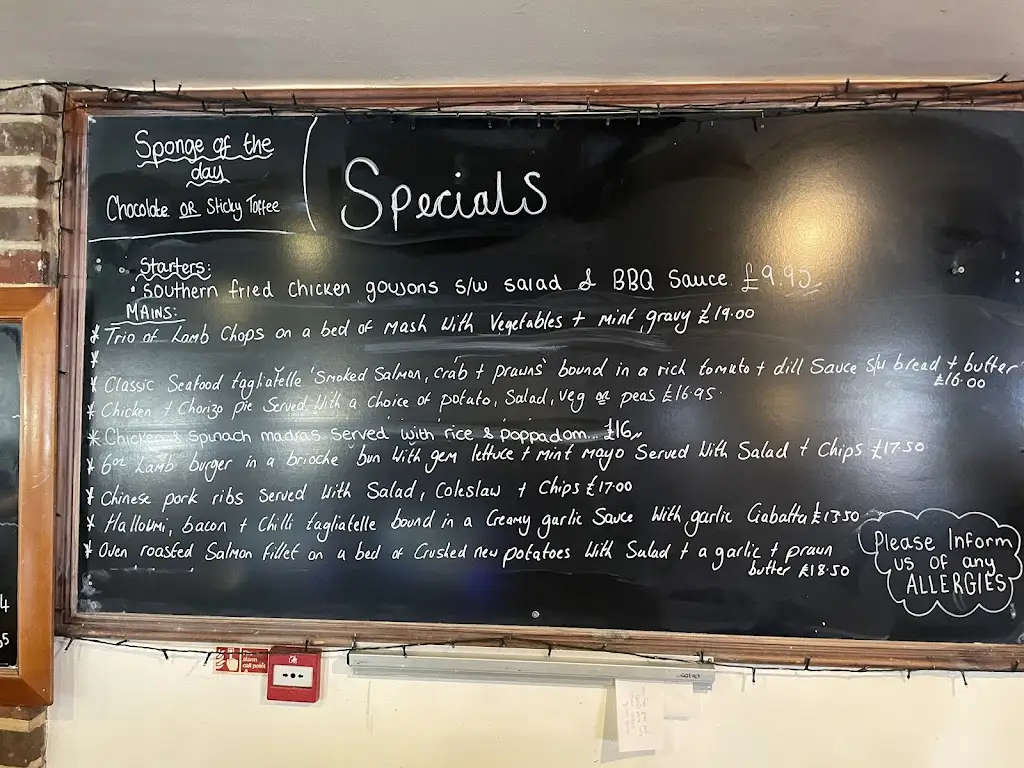 Sponge of the
day
Chocolate OR Sticky Toffee
Specials
Starters:
• Southern fried Chicken goujons s/w salad & BBQ Sauce £9.95
MAINS:
* Trio of Lamb Chops on a bed of Mash With Vegetables + Mint gravy £19.00
*
* Classic Seafood tagliatelle 'Smoked Salmon, crab + prawns' bound in a rich tomato + dill Sauce s/w bread + butter
£16.00
* Chicken + Chorizo pie Served With a choice of potato, Salad, Veg or peas £16.95
* Chicken & Spinach madras served with rice & poppadom... £16,,
* 6oz Lamb burger in a brioche bun With gem lettuce + mint mayo Served With Salad + Chips £17.50
* Chinese pork ribs Served With Salad, Coleslaw + Chips £17.00
* Halloumi, bacon + Chilli tagliatelle bound in a Creamy garlic Sauce With garlic Ciabatta £13.50
* Oven roasted Salmon Fillet on a bed of Crushed new potatoes With Salad + a garlic + prawn
butter £18.50
Please Inform
us of any
ALLERGIES
4
5
alarm
call point